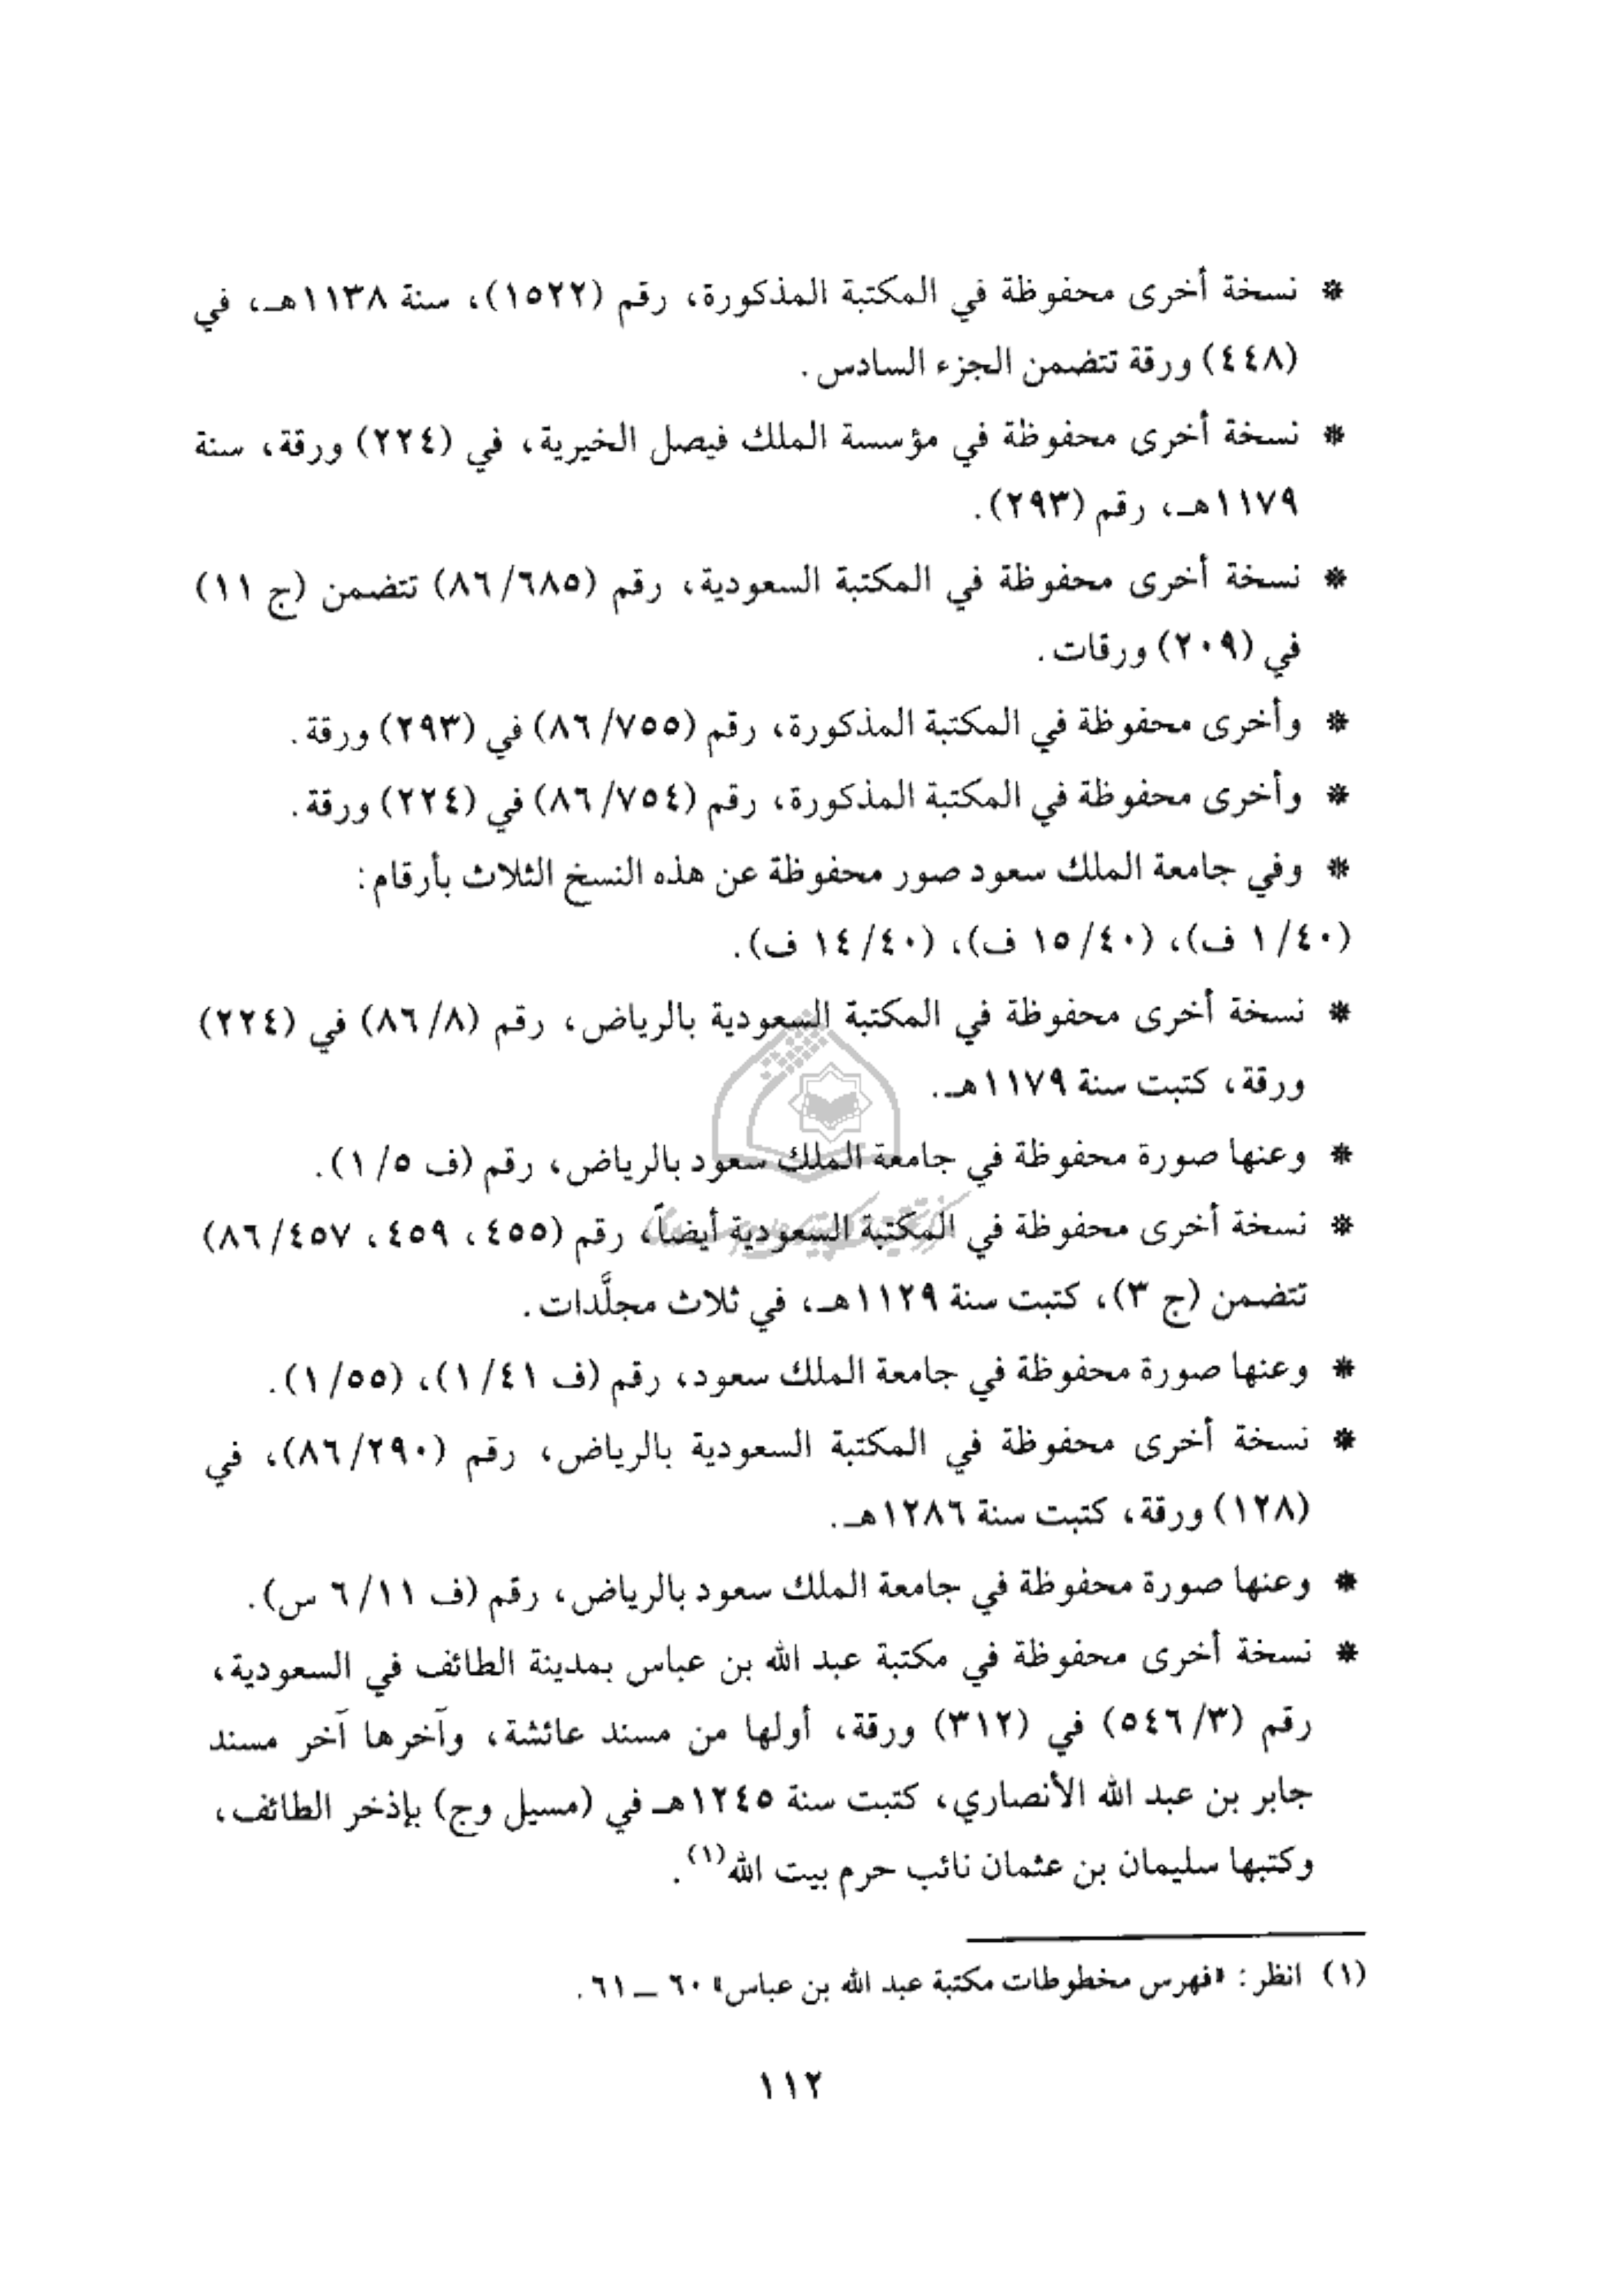 * نسخة أخرى محفوظة في المكتبة المذكورة، رقم (١٥٢٢)، سنة ١١٣٨هـ، في
(٤٤٨) ورقة تتضمن الجزء السادس.
* نسخة أخرى محفوظة في مؤسسة الملك فيصل الخيرية، في (٢٢٤) ورقة، سنة
١١٧٩هـ، رقم (٢٩٣).
* نسخة أخرى محفوظة في المكتبة السعودية، رقم (٨٦/٦٨٥) تتضمن (ج ١١)
في (٢٠٩) ورقات.
* وأخرى محفوظة في المكتبة المذكورة، رقم (٨٦/٧٥٥) في (٢٩٣) ورقة.
* وأخرى محفوظة في المكتبة المذكورة، رقم (٨٦/٧٥٤) في (٢٢٤) ورقة.
* وفي جامعة الملك سعود صور محفوظة عن هذه النسخ الثلاث بأرقام:
(١/٤٠ ف)، (١٥/٤٠ ف)، (١٤/٤٠ ف).
* نسخة أخرى محفوظة في المكتبة السعودية بالرياض، رقم (٨٦/٨) في (٢٢٤)
ورقة، كتبت سنة ١١٧٩هـ.
* وعنها صورة محفوظة في جامعة الملك سعود بالرياض، رقم (ف ١/٥).
* نسخة أخرى محفوظة في المكتبة السعودية أيضاً، رقم (٤٥٥، ٤٥٩، ٨٦/٤٥٧)
تتضمن (ج ٣)، كتبت سنة ١١٢٩هـ، في ثلاث مجلَّدات.
* وعنها صورة محفوظة في جامعة الملك سعود، رقم (ف ١/٤١)، (١/٥٥).
* نسخة أخرى محفوظة في المكتبة السعودية بالرياض، رقم (٨٦/٢٩٠)، في
(١٢٨) ورقة، كتبت سنة ١٢٨٦هـ.
* وعنها صورة محفوظة في جامعة الملك سعود بالرياض، رقم (ف ٦/١١ س).
* نسخة أخرى محفوظة في مكتبة عبد الله بن عباس بمدينة الطائف في السعودية،
رقم (٥٤٦/٣) في (٣١٢) ورقة، أولها من مسند عائشة، وآخرها آخر مسند
جابر بن عبد الله الأنصاري، كتبت سنة ١٢٤٥هـ في (مسيل وج) بإذخر الطائف،
وكتبها سليمان بن عثمان نائب حرم بيت الله(١).
(١) انظر: «فهرس مخطوطات مكتبة عبد الله بن عباس» ٦٠ ــ ٦١.
١١٢